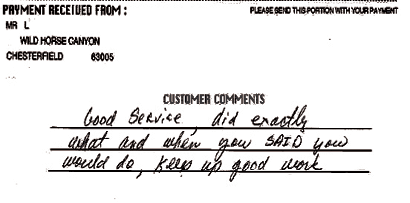 PAYMENT RECEIVED FROM:
PLEASE SEND THIS PORTION WITH YOUR PAYMENT
MR L
WILD HORSE CANYON
CHESTERFIELD 63005
CUSTOMER COMMENTS
Good Service, did exactly
what and when you SAID you
would do, Keep up good work